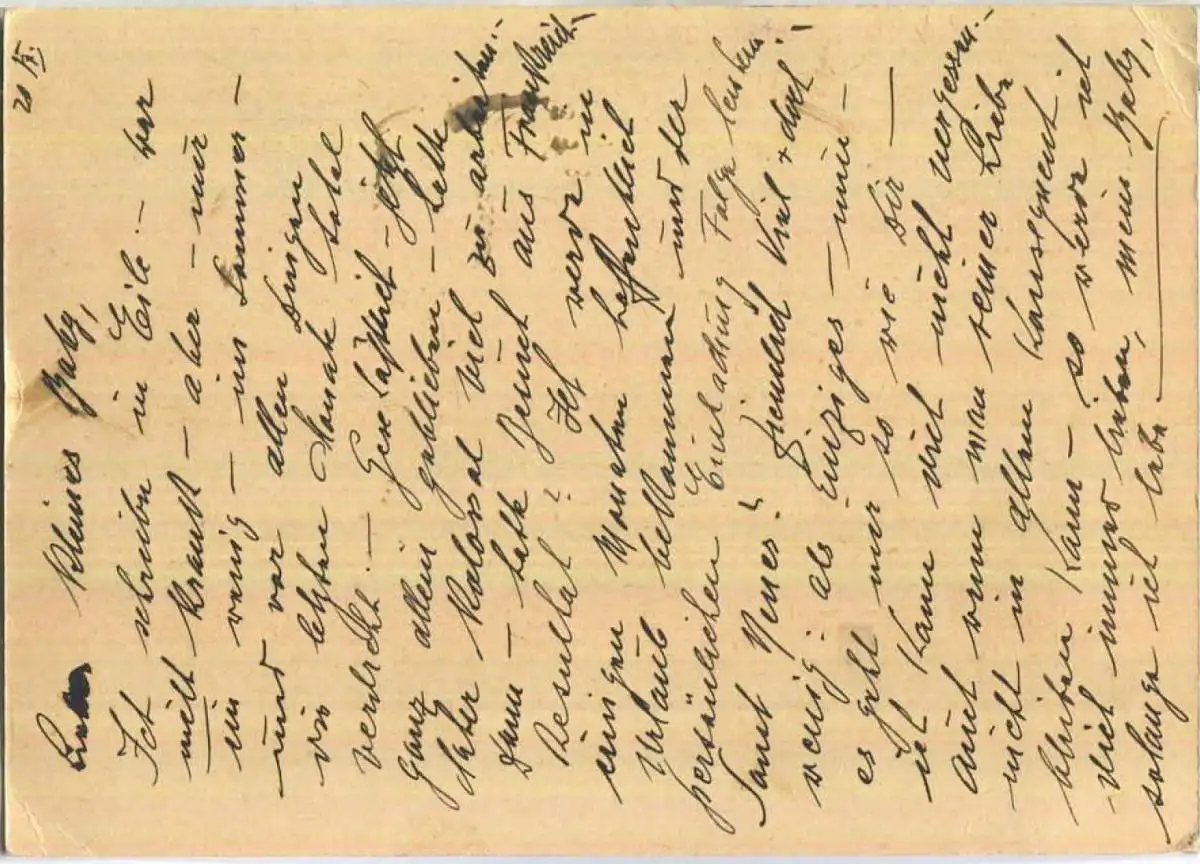 20 XI.
kleines Baby,
Ich schreibe in Eile. – war
nicht krank – aber – nur
ein wenig – ins Sommer –
und vor allen Dingen
im letzten Monat total
verliebt. – Geschäftlich – jetzt
ganz allein geblieben – hatte
daher kolossal viel zu arbeiten. –
Dann – hatte Besuch aus Frankreich. –
Resultat? Ich werde in
einigen Monaten hoffentlich
Urlaub bekommen und der
persönlichen Einladung Folge leisten!
Sonst Neues? Ziemlich viel + doch
wenig: als Einziges – nun –
es geht mir so wie Dir –
ich kann Dich nicht vergessen. –
Auch wenn man seiner Liebe
nicht in allem konsequent
bleiben kann – so werde ich
Dich immer lieben, mein Baby,
solange ich lebe.